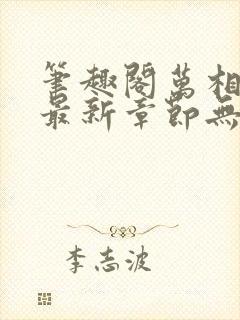 筆趣閣萬相
最新章節無
李志波